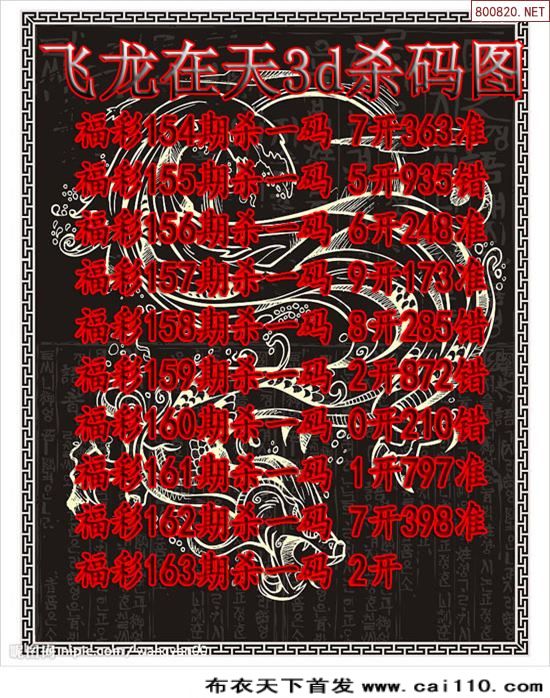 800820.NET
飞龙在天3d杀码图
福彩154期杀一码 7开363准
福彩155期杀一码 5开935错
福彩156期杀一码 6开248准
福彩157期杀一码 9开173准
福彩158期杀一码 8开285错
福彩159期杀一码 2开872错
福彩160期杀一码 0开210错
福彩161期杀一码 1开777准
福彩162期杀一码 7开398准
福彩163期杀一码 2开
布衣天下首发 www.cai110.com